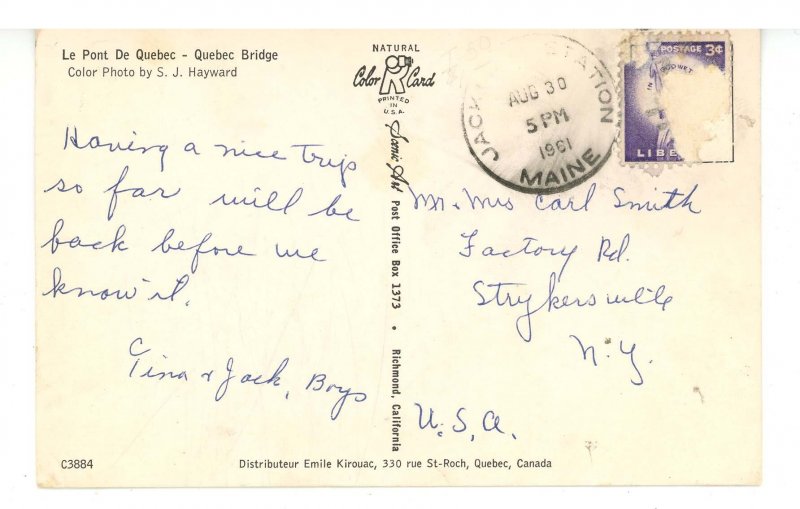 Le Pont De Quebec - Quebec Bridge
Color Photo by S. J. Hayward
Having a nice trip
so far will be
back before we
know it.
Tina & Jack, Boys
C3884
NATURAL
Color Card
PRINTED
IN
U.S.A.
Scenic Art Post Office Box 1373 • Richmond, California
STATION
AUG 30
5 PM
1961
MAINE
POSTAGE 3¢
LIBE
Mr. Mrs Carl Smith
Factory Rd.
Strykersville
N.Y.
U.S.A.
Distributeur Emile Kirouac, 330 rue St-Roch, Quebec, Canada